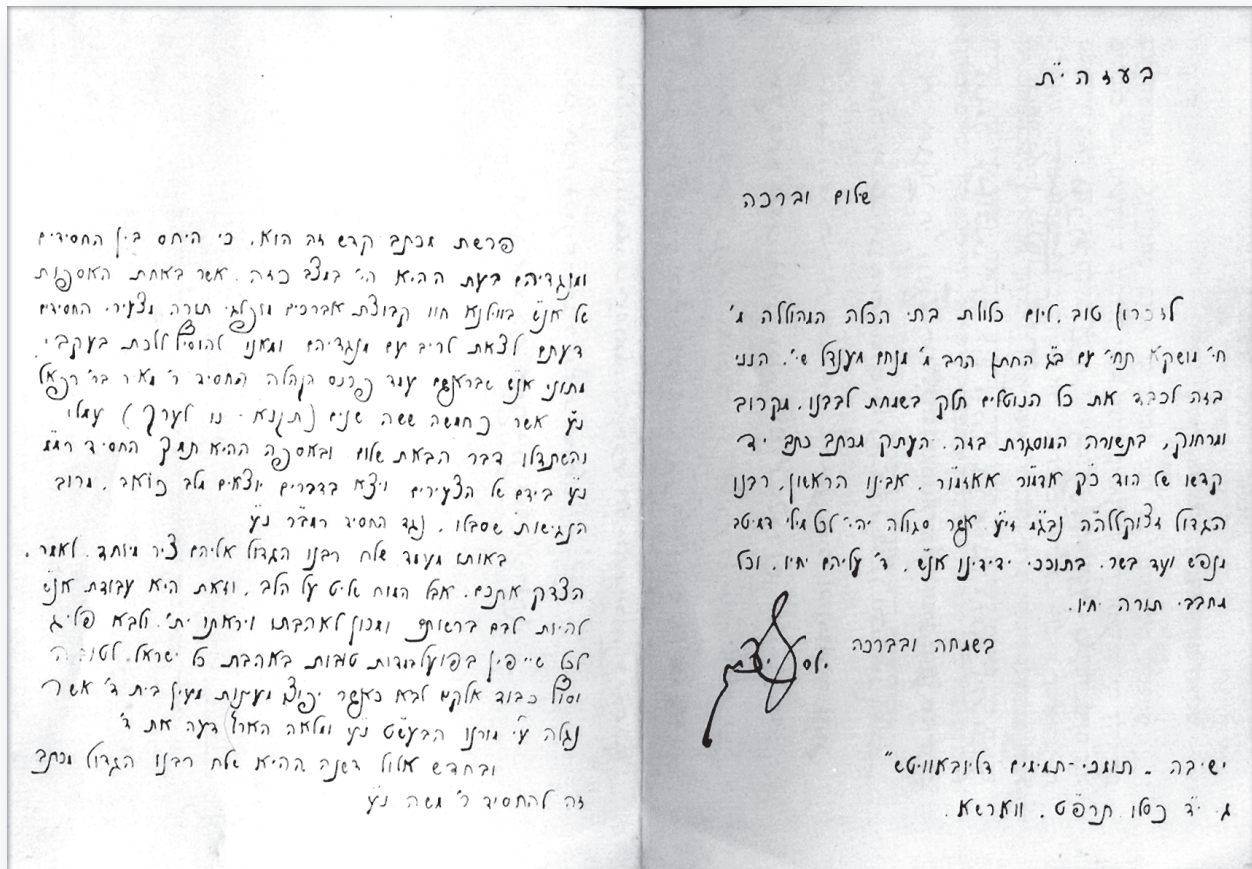 בעזהי"ת
שלום וברכה
לזכרון טוב, ליום כלולת בתי הכלה המהוללה מ'
חי' מושקא תחי' עם ב"ג החתן הרב מ' מנחם מענדל שי', הנני
בזה לכבד את כל הנוטלים חלק בשמחת לבבנו, מקרוב
ומרחוק, בתשורה המוסגרת בזה, העתק מכתב כתב יד
קדשו של הוד כ"ק אדמו"ר אאזמו"ר, אבינו הראשון, רבנו
הגדול זצוקללה"ה נבג"מ זי"ע, אשר סגולה יהי' לכל מילי דמיטב
מנפש ועד בשר, בתוככי ידידינו אנ"ש, ד' עליהם יחיו, וכל
מחבבי תורה יחיו.
בשמחה ובברכה
יוסף יצחק
ישיבה „תומכי-תמימים דליובאוויטש"
ג' י"ד כסלו תרפ"ט, ווארשא.
פרשת מכתב קדש זה הוא, כי היחס בין החסידים
ומנגדיהם בעת ההיא הי' במצב כזה, אשר באחת האספות
של אנ"ש בווילנא חוו קבוצת אברכים מופלגי תורה מצעירי החסידים
דעתם לצאת לריב עם מנגדיהם ומאנו להוסיף ללכת בעקבי
מתוני אנ"ש שבראשם עמד פרנס הקהלה החסיד ר' מאיר בר' רפאל
נ"ע אשר כחמשה ששה שנים (תקנא - נו לערך) עמלו
והשתדלו דבר הבאת שלום ובאספה ההיא תמך החסיד רמ"מ
נ"ע בידם של הצעירים ויצא בדברים יוצאים מלב כואב, מרוב
הנגישות שסבלו, נגד החסיד רמב"ר נ"ע
באותו מעמד שלח רבנו הגדול אליהם ציר מיוחד, לאמר,
הצדק אתכם, אבל המוח שליט על הלב, וזאת היא עבודת אנ"ש
להיות לבם ברשותם ומכון לאהבתו ויראתו ית', ולבא פליג
לכל שייפין בפועל במדות טובות באהבת כל ישראל, לטובה
וסוף כבוד אלקים לבא כאשר יפוצו מעינות מעין בית ד' אשר
נגלה ע"י מורנו הבעש"ט נ"ע ומלאה הארץ דעה את ד'
ובחדש אלול דשנה ההיא שלח רבנו הגדול מכתב
זה להחסיד ר' משה נ"ע